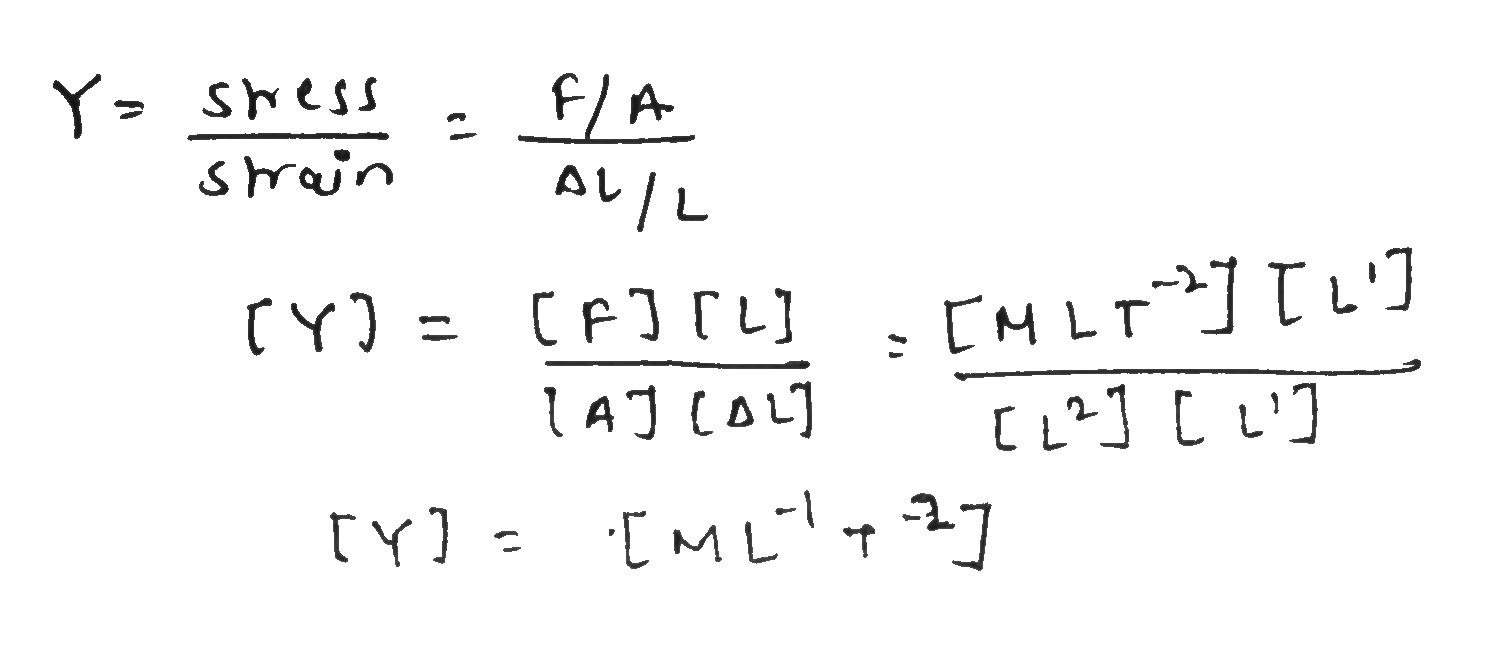 Y = stress/strain = (F/A)/(ΔL/L)
[Y] = [F][L]/[A][ΔL] = [MLT⁻²][L¹]/[L²][L¹]
[Y] = [ML⁻¹T⁻²]